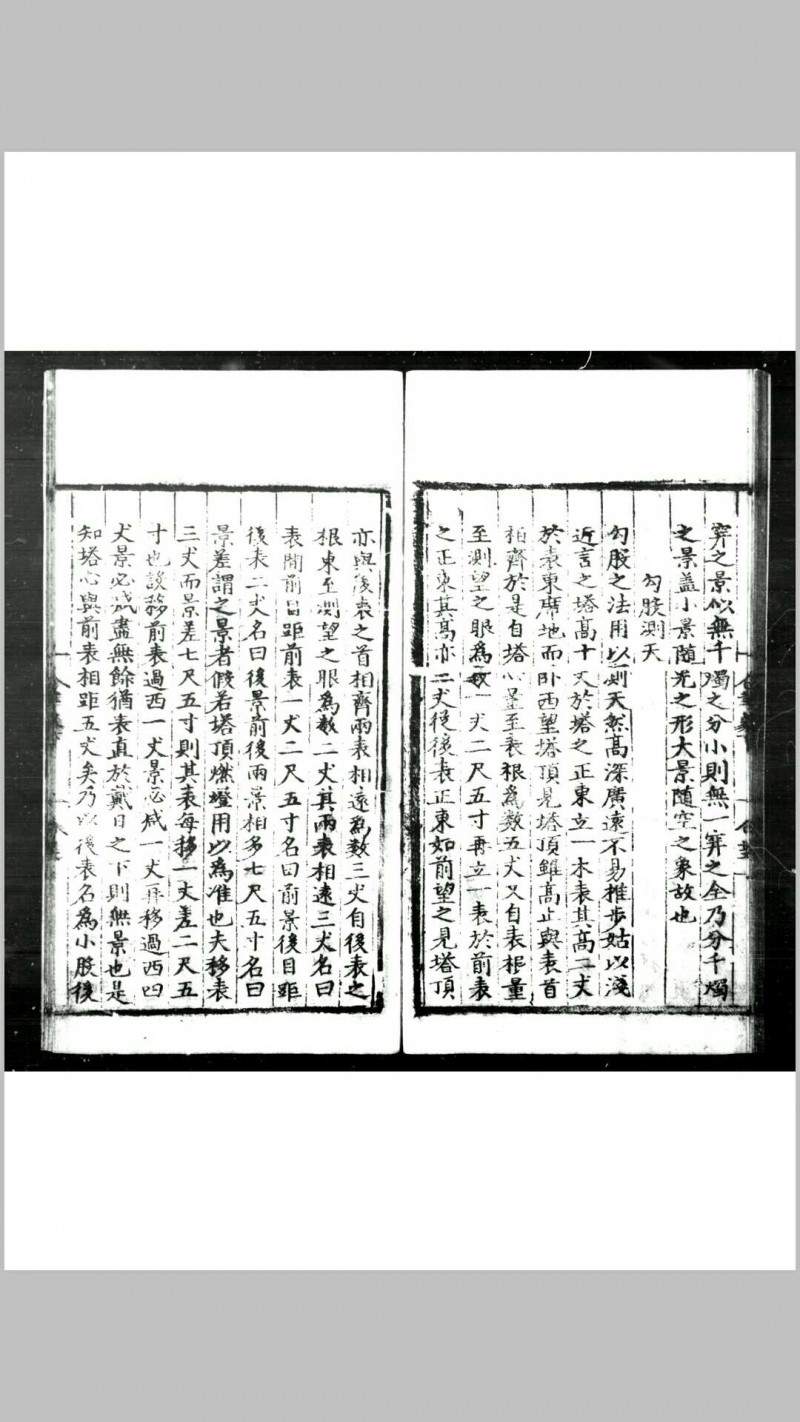 穽之景似無千燭之分小則無一穽之全乃分千燭
之景蓋小景隨光之形大景隨空之象故也
勾股測天
勾股之法用以測天然高深廣遠不易推步姑以淺
近言之塔高十丈於塔之正東立一木表其高二丈
於表東席地而臥西望塔頂見塔頂雖高止與表首
相齊於是自塔心量至表根為數五丈又自表根量
至測望之眼為數一丈二尺五寸再立一表於前表
之正東其高亦二丈從後表正東如前望之見塔頂
亦與後表之首相齊兩表相遠為數三丈自後表之
根東至測望之眼為數二丈其兩表相遠三丈名曰
表間前目距前表一丈二尺五寸名曰前景後目距
後表二丈名曰後景前後兩景相多七尺五寸名曰
景差謂之景者假若塔頂燃燈用以為准也夫移表
三丈而景差七尺五寸則其表每移一丈差二尺五
寸也設移前表過西一丈景必減一丈再移過西四
丈景必減盡無餘猶表直於戴日之下則無景也是
知塔心與前表相距五丈矣乃以後表名為小股後